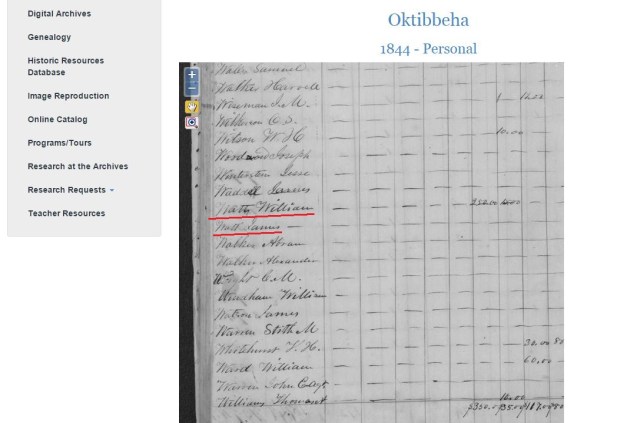 Digital Archives
Genealogy
Historic Resources
Database
Image Reproduction
Online Catalog
Programs/Tours
Research at the Archives
Research Requests
Teacher Resources
Oktibbeha
1844 - Personal
Samuel
Walker Harvell
Wiseman J. M.
Wilkinson C. S.
Wilson W. H. 10.00
Woodward Joseph
Winterton Jesse
Waddell James
Watts William
Watt James
Walker Abram
Walker Alexander
C. M.
Windham William
Watson James
Warren Stoth M
Whitehurst 30.00
Ward William 60.00
Warren John Clay
Williams Thomas 10.00